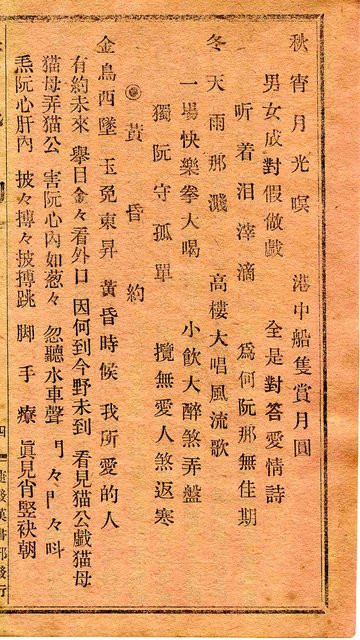 秋宵月光暝　港中船隻賞月圓
男女成對假做戲　全是對答愛情詩
听着泪滓滴　為何阮那無佳期
冬天雨那濺　高樓大唱風流歌
一場快樂拳大喝　小飲大醉煞弄盤
獨阮守孤單　攬無愛人煞返寒
◎黃昏約
金烏西墜　玉兔東昇　黃昏時候　我所愛的人
有約未來　舉目金々看外口　因何到今野未到　看見猫公戲猫母
猫母弄猫公　害阮心內如葱々　忽聽水車聲　鬥々鬥々叫
阮心肝內　披々搏々披搏跳　脚手療　眞見肖竪袂朝
四